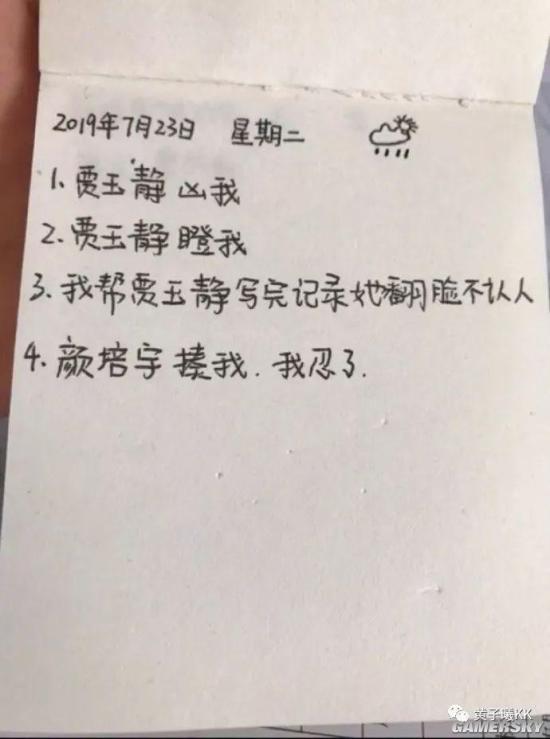 2019年7月23日 星期二
1.贾玉静凶我
2.贾玉静瞪我
3.我帮贾玉静写完记录她翻脸不认人
4.颜培宇揍我.我忍了.
黄子曦KK
GAMERSKY